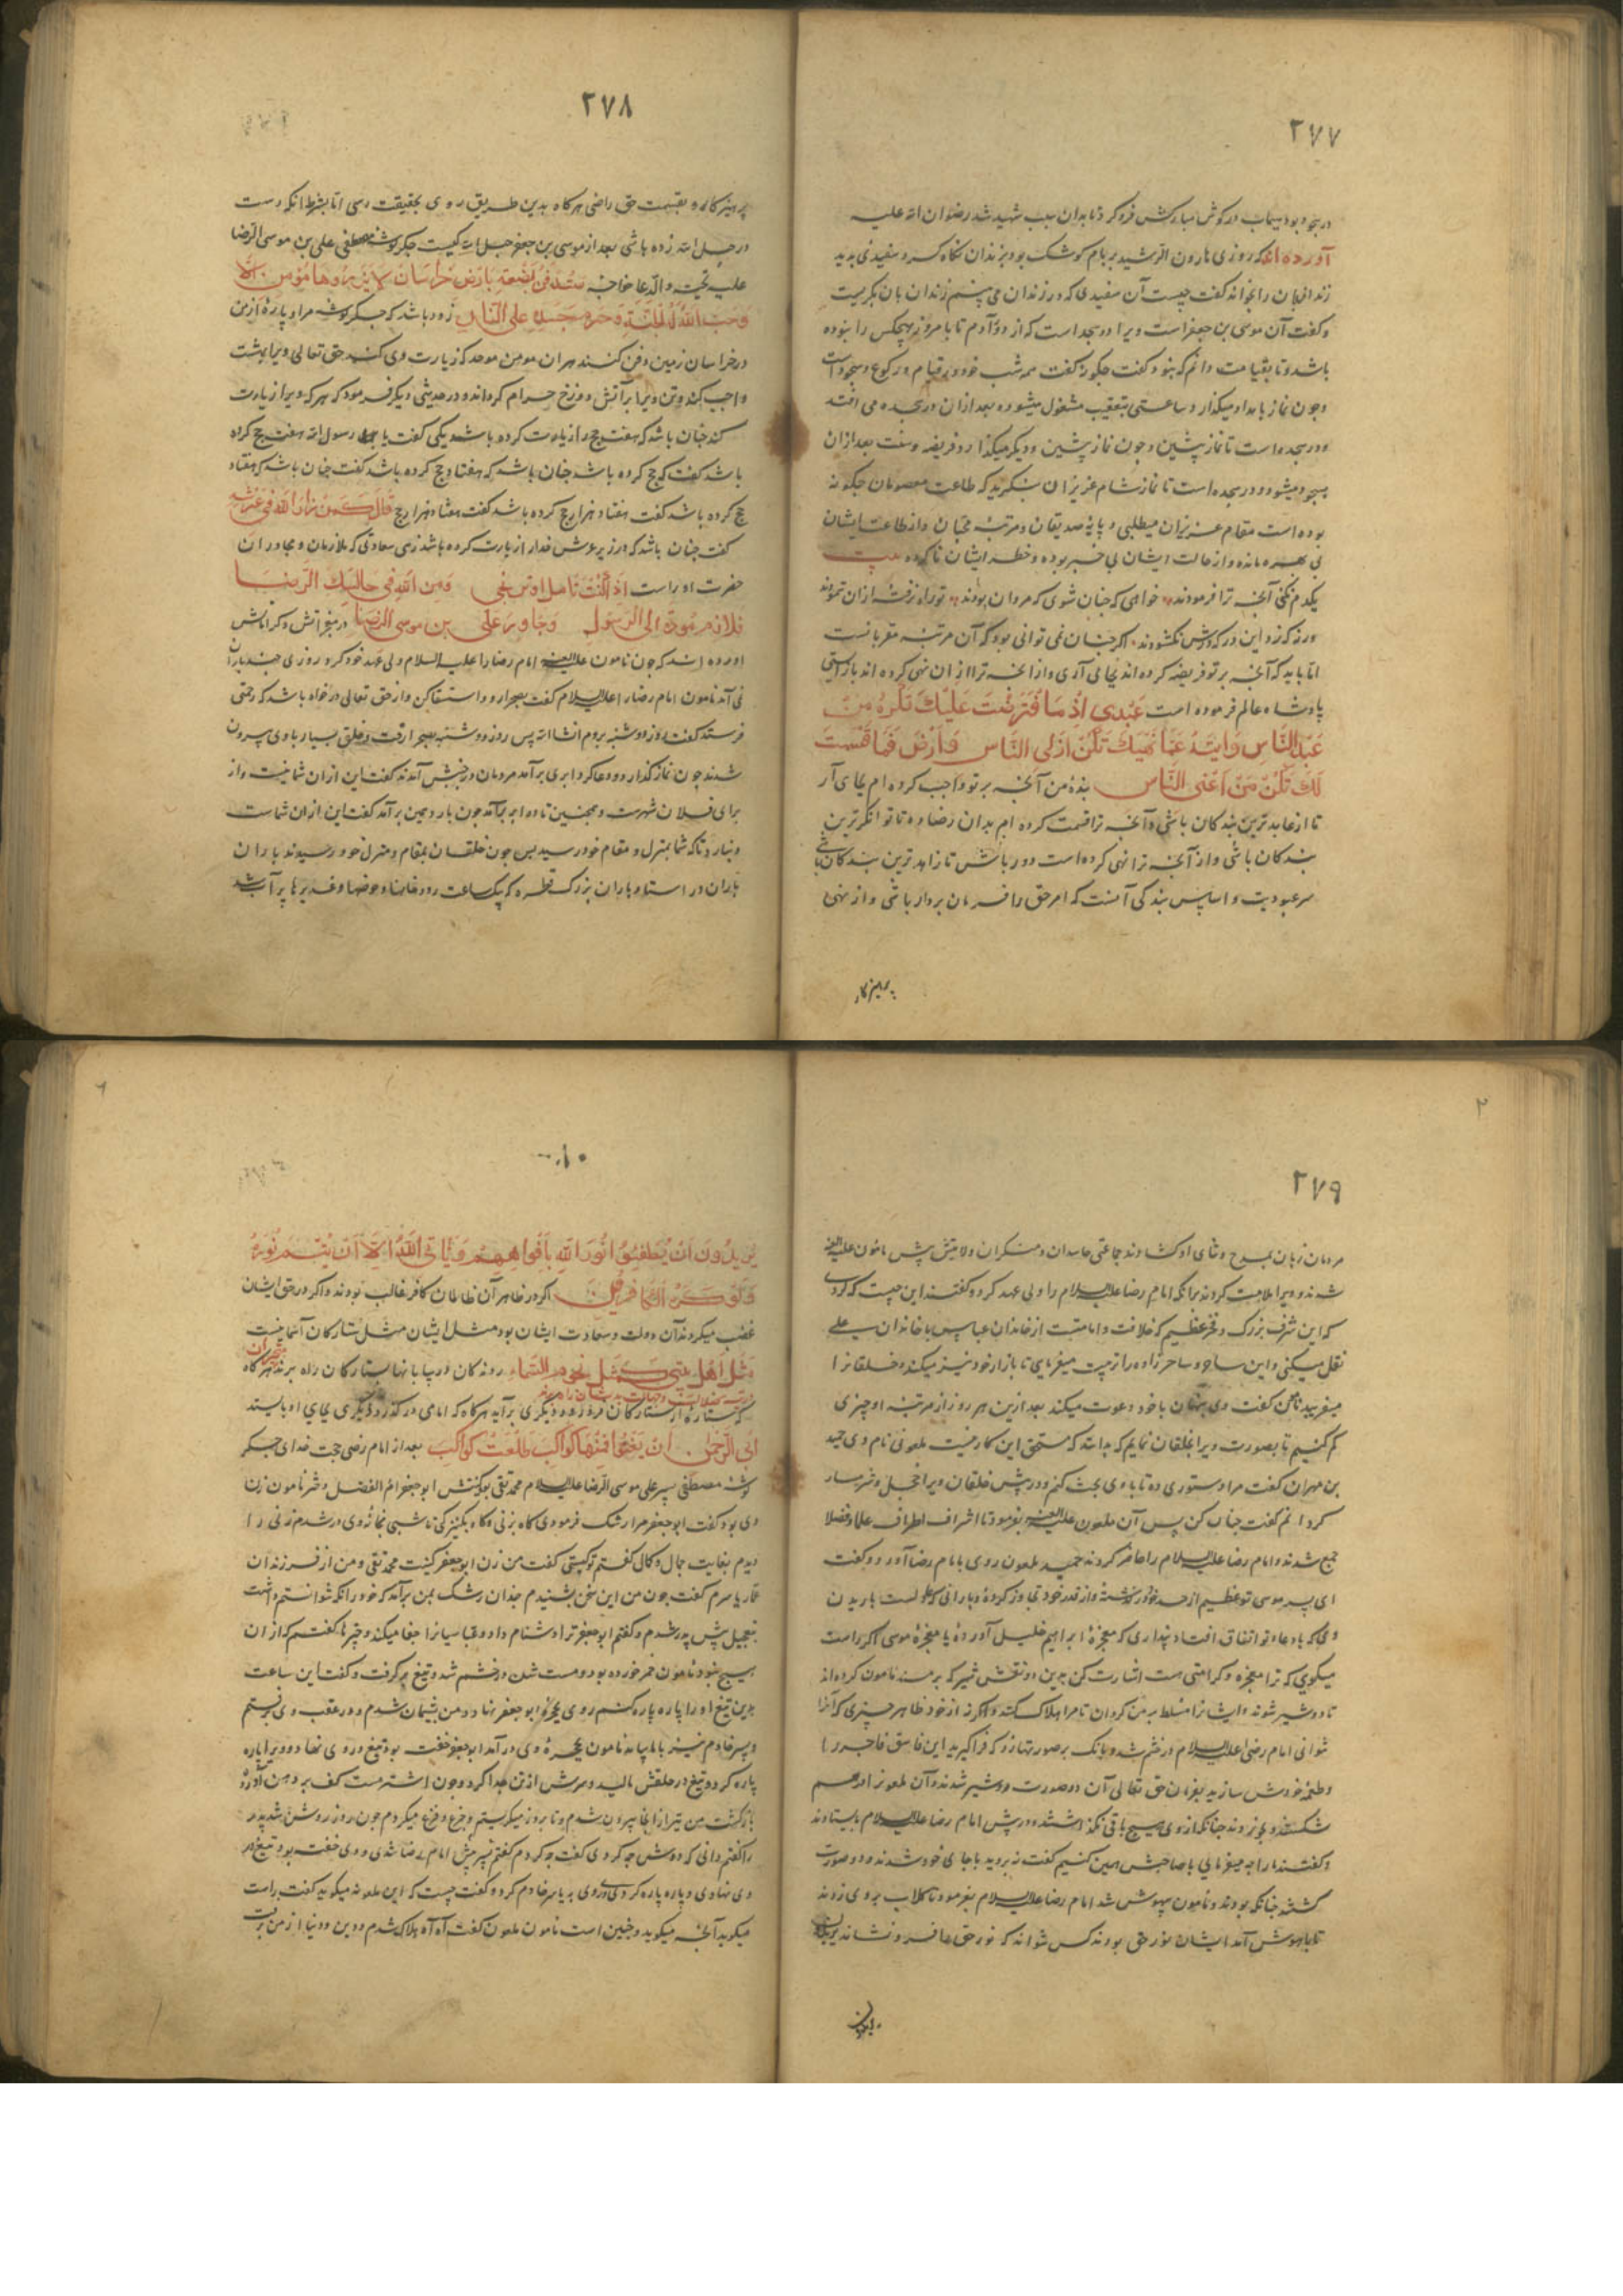 ۲۷۷
در سجود بود سیماب در گوش مبارکش فرو کردند تا بدان سبب شهید شد رضوان الله علیه
آورده‌اند که روزی هارون الرشید بر بام کوشک بود بزندان نگاه کرد سفیدی بدید
زندانبان را بخواند گفت چیست آن سفیدی که در زندان می بینم زندان بان بگریست
و گفت آن موسی بن جعفر است ویرا در سجد است که از دور آدم تا بامروز هیچکس را نبوده
باشد و تا بقیامت دانم که بنود گفت چگونه گفت همه شب خود در قیام و رکوع و سجود است
و چون نماز بامداد میگذارد ساعتی بتعقیب مشغول میشود بعد از ان در سجده می افتد
و در سجده است تا نماز پیشین و چون نماز پیشین و دیگر میگذارد و فریضه و سنت بعد از ان
بسجود میشود و در سجده است تا نماز شام عزیزان بنگرید که طاعت معصومان چگونه
بوده است مقام عزیزان میطلبی و پایه صدیقان و مرتبه محبان و از طاعت ایشان
بی بهره مانده و از حالت ایشان بی خبر بوده و خطر ایشان ناکرده بیت
یکدم نکنی آنچه ترا فرمودند خواهی که چنان شوی که مردان بودند تو راه نرفته ازان ننمودند
ورنه که زد این در که درش نگشودند اگر چنان نمی توانی بود که آن مرتبه مقربانست
اما باید که آنچه بر تو فریضه کرده اند بجای آری و از آنچه ترا از ان نهی کرده اند باز ایستی
پادشاه عالم فرموده است عبدی اد ما افترضت علیک تکن من
اعبد الناس وانته عما نهیتک تکن ازهد الناس وارض فما قسمت
لک تکن من اغنی الناس بنده من آنچه بر تو واجب کرده ام بجای آر
تا از عابد ترین بندگان باشی و آنچه ترا قسمت کرده ام بدان رضا ده تا توانگر ترین
بندگان باشی و از آنچه ترا نهی کرده است دور باش تا زاهد ترین بندگان باشی
سر عبودیت و اساس بندگی آنست که امر حق را فرمان بردار باشی و از نهی
پرهیزکار
۲۷۸
پرهیزکار و بقسمت حق راضی هرگاه بدین طریق روی بحقیقت رسی اما بشرط آنکه دست
در حبل الله زده باشی بعد از موسی بن جعفر حبل الله کیست جگر گوشه مصطفی علی بن موسی الرضا
علیه تحیة والدعا خواجه ستدفن بضعة بارض خراسان لا یزورها مؤمن الا
وجب الله له الجنة وحرم جسده علی النار زود باشد که جگر گوشه مرا و پاره از من
در خراسان زمین دفن کنند هر ان مومن موحد که زیارت وی کند حق تعالی ویرا بهشت
واجب کند و تن ویرا بر آتش دوزخ حرام گرداند و در حدیثی دیگر فرمود که هر که ویرا زیارت
کند چنان باشد که هفت حج و از زیادت کرده باشد یکی گفت یا رسول الله هفت حج کرده
باشد گفت که حج کرده باشد چنان باشد که هفتاد حج کرده باشد گفت چنان باشد که هفتاد
حج کرده باشد گفت هفتاد هزار حج کرده باشد گفت هفتاد هزار حج قال کمن زار الله فی عرشه
گفت چنان باشد که در زیر عرش خدا را زیارت کرده باشد زهی سعادتی که ملازمان و مجاوران
حضرت او راست اذ کنت تامل او ترتجی ومن الله فی حالیک الرضا
فلازم مودة الی الرسول وجاور علی بن موسی الرضا در معجزاتش و کراماتش
اورده اند که چون مامون علیه اللعنه امام رضا را علیه السلام ولی عهد خود کرد روزی چند باران
نمی آمد مامون امام رضا را علیه السلام گفت بصحرا رو و استسقا کن و از حق تعالی درخواه باشد که رحمتی
فرستد گفت روز دوشنبه بروم انشاالله پس روز دوشنبه بصحرا رفت و خلق بسیار با وی بیرون
شدند چون نماز گذارد و دعا کرد ابری برآمد مردمان در جنبش آمدند گفت این از ان شما نیست و از
برای فلان شهرست و همچنین تا ده ابر برآمد چون بار دهمین برآمد گفت این ازان شماست
و نبارد تا که شما بمنزل و مقام خود رسید پس چون خلقان بمقام و منزل خود رسیدند باران
باران در استاد باران بزرگ قطره که یک ساعت رودخانها و حوضها و غدیرها پر آب شد
۲۷۹
مردمان زبان بمدح و ثنای او گشادند جماعتی حاسدان و منکران ولایتش پیش مامون علیه اللعنه
شدند و ویرا ملامت کردند برانکه امام رضا علیه السلام را ولی عهد کرد و گفتند این چیست که کردی
که این شرف بزرگ و فخر عظیم که خلافت و امامتست از خاندان عباس با خاندان علی
نقل میکنی و این ساحر و ساحر زاده را تربیت میفرمایی تا بازار خود تیز میکند و خلقانرا
میفریبد مامون گفت وی پنهان با خود دعوت میکند بعد ازین هر روز از مرتبه او چیزی
کم کنیم تا بصورت ویرا بخلقان نمایم که بدانند که مستحق این کار نیست ملعونی نام وی حمید
بن مهران گفت مرا دستوری ده تا با وی بحث کنم و در پیش خلقان ویرا خجل و شرمسار
گردانم گفت چنان کن پس آن ملعون علیه اللعنه بفرمود تا اشراف اطراف علما و فضلا
جمع شدند و امام رضا علیه السلام را حاضر کردند حمید ملعون روی بامام رضا آورد و گفت
ای پسر موسی تو عظیم از حد خود گذشته و از قدر خود تجاوز کرده و بارانی که است باریدن
وی که با دعا تو اتفاق افتاد پنداری که معجزه ابراهیم خلیل آورده یا معجزه موسی اگر راست
میگویی که ترا معجزه و کرامتی هست اشارت کن بدین دو نقش شیر که بر مسند مامون کرده اند
تا دو شیر شوند و ایشانرا مسلط بر من گردان تا مرا هلاک کنند و اگر نه از خود ظاهر چیزی که آنرا
نتوانی امام رضی علیه السلام در خشم شد و بانک بر صورتها زد که فراگیرید این فاسق فاجر را
و طعمه خودش سازید بفرمان حق تعالی آن دو صورت دو شیر شدند و آن ملعون را در هم
شکستند و بخوردند چنانکه از وی هیچ باقی نگذاشتند و در پیش امام رضا علیه السلام بایستادند
و گفتند ما را چه میفرمایی با صاحبش همین کنیم گفت نه بروید با جای خود شدند و دو صورت
گشتند چنانکه بودند و مامون بیهوش شد امام رضا علیه السلام بفرمود تا گلاب بروی زدند
تا باهوش آمد ایشان نور حق بودند کس نتواند که نور حق را فرو نشاند یریدون
یریدون
۱۰
یریدون ان یطفئوا نور الله بافواههم ویابی الله الا ان یتم نوره
ولو کره الکافرون اگر در ظاهر آن ظالمان کافر غالب بودند و اگر در حق ایشان
غضب میکردند آن دولت و سعادت ایشان بود مثل ایشان مثل ستارگان آسمانیست
مثل اهل بیتی کمثل نجوم السماء روندگان در بیابانها بستارگان راه برند هرگاه
که ستاره از ستارگان فرو رود دیگری برآید هرگاه که امامی در گذرد دیگری بجای او بایستد
ابی الرحمن ان یغیبوا منها کواکب طلعت کواکب بعد از امام رضی حجت خدای جگر
گوشه مصطفی پسر علی موسی الرضا علیه السلام محمد تقی بود کنیتش ابو جعفر ام الفضل دختر مامون زن
وی بود گفت ابو جعفر مرا رشک فرمودی گاه بزنی و گاه بکنیزکی تا شبی بخانه وی در شدم زنی را
دیدم بغایت جمال و کمال گفتم تو کیستی گفت من زن ابو جعفر کنیت محمد تقی و من از فرزندان
عمار یاسرم گفت چون من این سخن بشنیدم چندان رشک بمن برآمد که خود را نگه نتوانستم داشت
بتعجیل پیش پدر شدم و گفتم ابو جعفر ترا دشنام داد و عباسیانرا جفا میکند و چیزها گفتم که از ان
هیچ نبود مامون خمر خورده بود و مست شدن در خشم شد و تیغ بر گرفت و گفت این ساعت
بدین تیغ او را پاره پاره کنم روی بحجره ابو جعفر نهاد و من پشیمان شدم و در عقب وی برفتم
و یاسر خادم نیز با ما بیامد مامون بحجره وی در آمد ابو جعفر خفته بود تیغ در وی نهاد و ویرا پاره
پاره کرد و تیغ در حلقش مالید و سرش از تن جدا کرد و چون اشتر مست کف بر دهن آورده
بازگشت من نیز از انجا بیرون شدم و تا بروز میگریستم و جزع و فزع میکردم چون روز روشن شد پدر
را گفتم دانی که دوش چه کردی گفت چه کردم گفتم بسر پیش امام رضا شدی و وی خفته بود تیغ در
وی نهادی و پاره پاره کردی روی به یاسر خادم کرد و گفت چیست که این ملعونه میگوید گفت راست
میگوید آنچه میگوید و چنین است مامون ملعون گفت آه آه هلاک شدم و دین و دنیا از من برفت